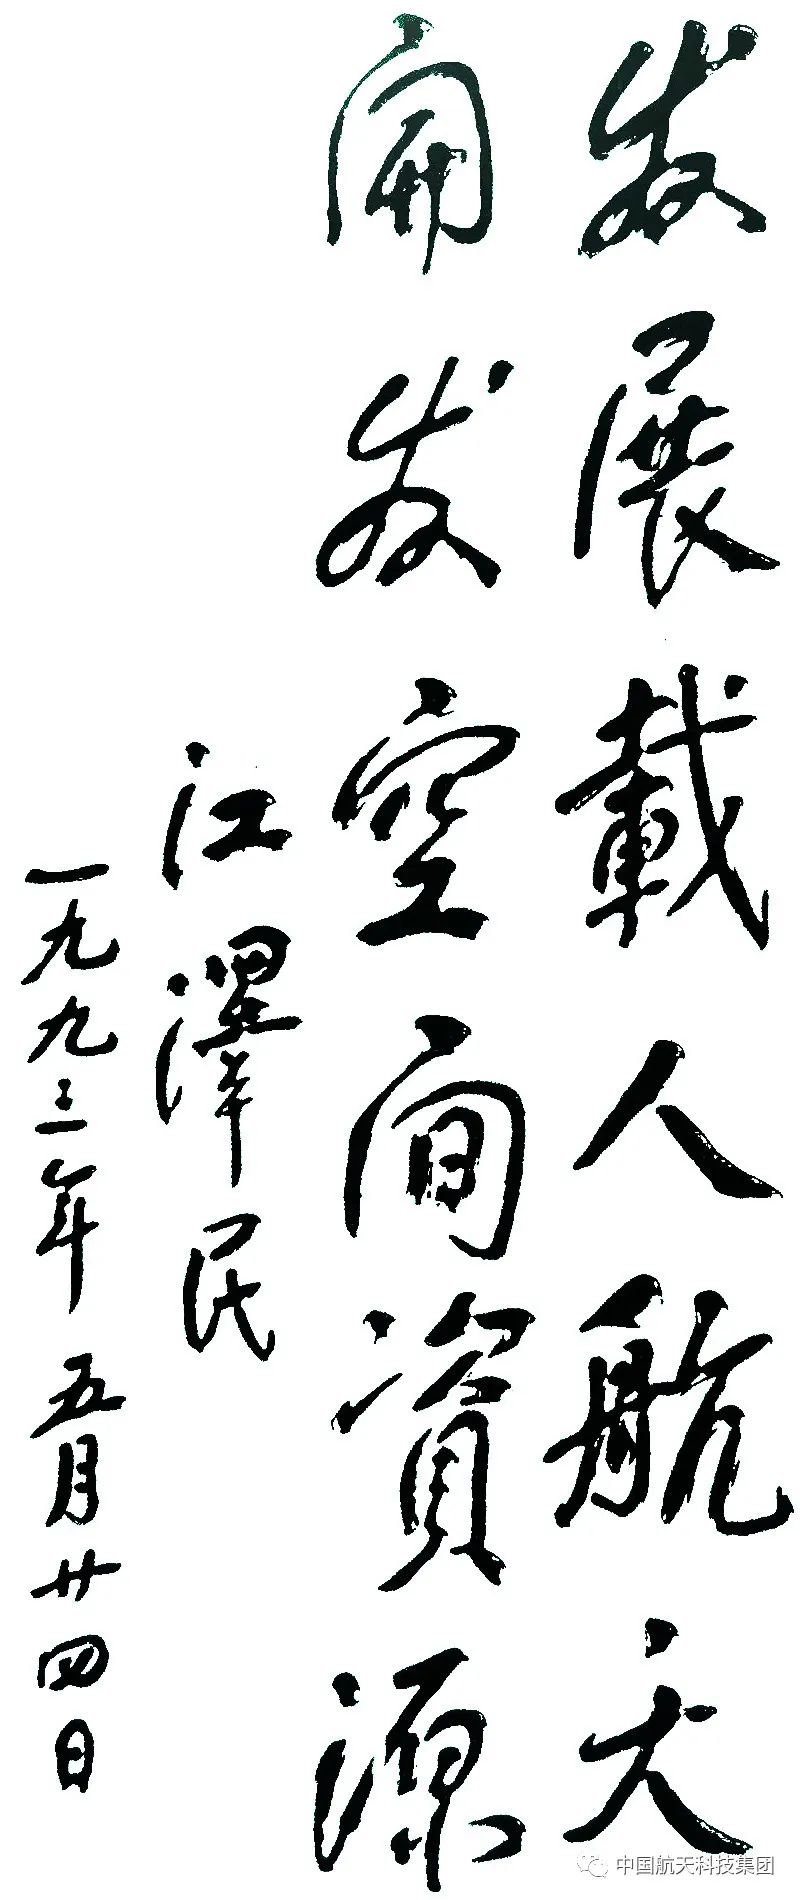 发展載人航天
開发空间資源
江澤民
一九九三年五月廿四日
中国航天科技集团